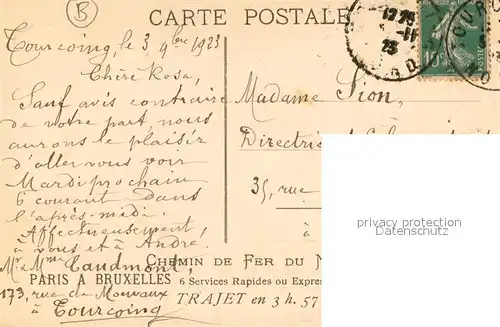 B
CARTE POSTALE
12 25
-11
23
10c
POSTES
Tourcoing le 3 9bre 1923
Chère Rosa,
Sauf avis contraire
de votre part nous
aurons le plaisir
d'aller vous voir
Mardi prochain
6 courant dans
l'après-midi.
Affectueusement,
à vous et à André.
Mr & Mme Taudmont,
173, rue de Mouvaux
Tourcoing
Madame Sion,
Directrice
35, rue
à
CHEMIN DE FER DU N
PARIS A BRUXELLES 6 Services Rapides ou Expres
TRAJET en 3 h. 57
personal data protection
Personendatenschutz